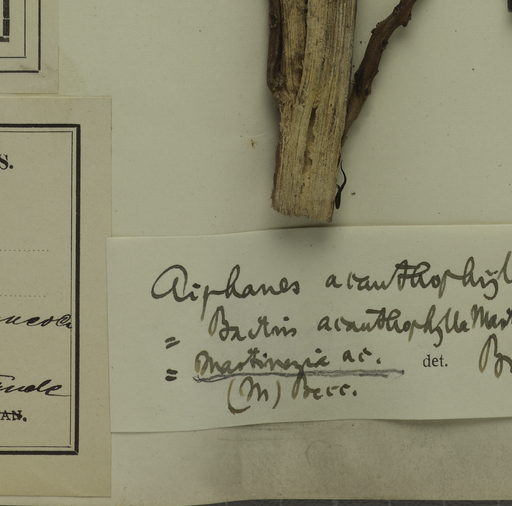 S.
AN.
Aiphanes acanthophyll
= Bactris acanthophylla Mart
= Martinezia ac. det. B
(M) Becc.